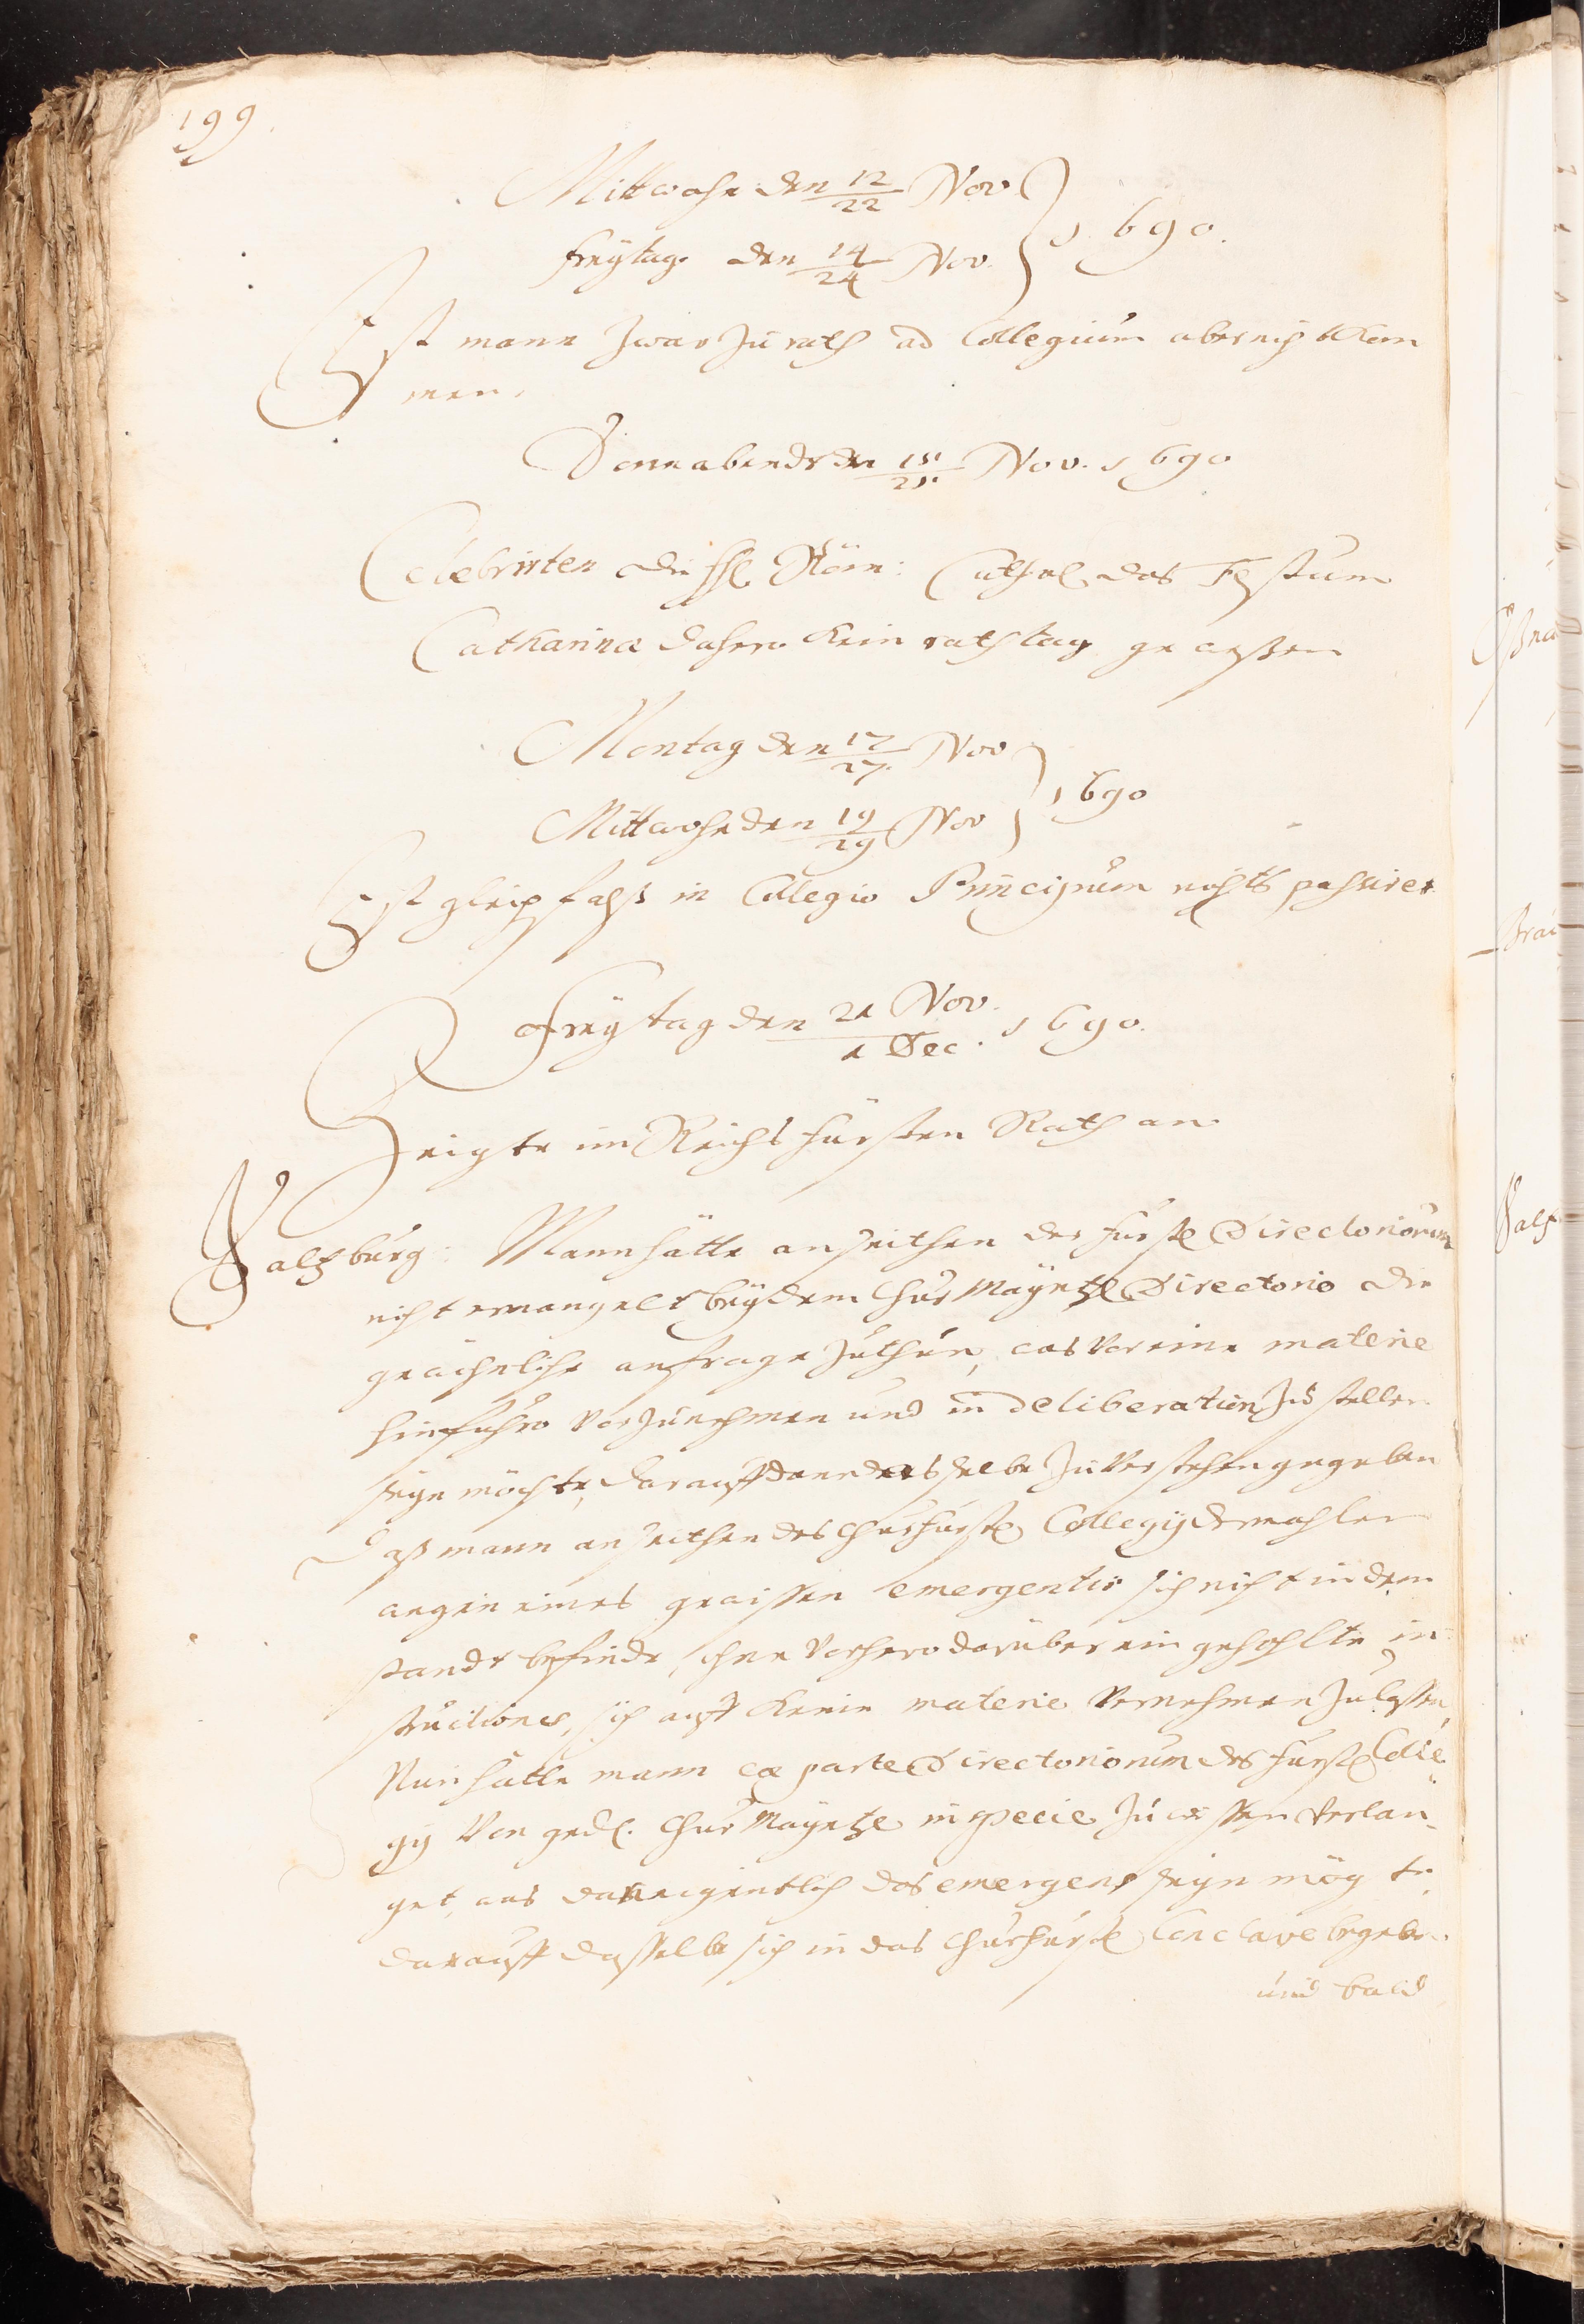 199
Mittwoche den 12/22 Nov.
Freytags den 14/24 Nov. } 1690.
Ist mann zwar zu rath ad Collegium aber nicht kom
men.
Sonnabends den 15/25 Nov. 1690
Celebrirten die hhl. Röm: Cathol. das Festum
Catharinæ dahero kein rathstag gewessen
Montag den 17/27 Nov
Mittwoche den 19/29 Nov } 1690
Ist gleichfalß in Collegio Principum nichts passiret
Freytag den 21 Nov./1 Dec. 1690.
Zeigte im Reichs fürsten Rath an
Saltzburg: Mann hätte an seithen der fürstl. Directoriorum
nicht ermangelt bey dem Chur Mayntzl. Directorio die
gewöhnliche anfrage zuthun, was vor eine materie
hinfuhro vorzunehmen und in deliberation zustellen
seye möchte, darauff dann dasselbe zu verstehen gegeben
Daß mann an seithen des Churfürstl. Collegy dermahlen
wegen eines gewissen emergentis sich nicht in dem
stande befinde, ohne vorhero darüber eingehohlte in
structiones, sich auff keine materie vernehmen zulassen,
Nun hätte mann ex parte Directoriorum des fürstl. Colle
gy von gedl. Chur Mayntzl. in specie zu wissen verlan-
get, was dan eigentlich das emergens seyn mögte,
darauff dasselbe sich in das Churfürstl. Conclave begeben
und bald